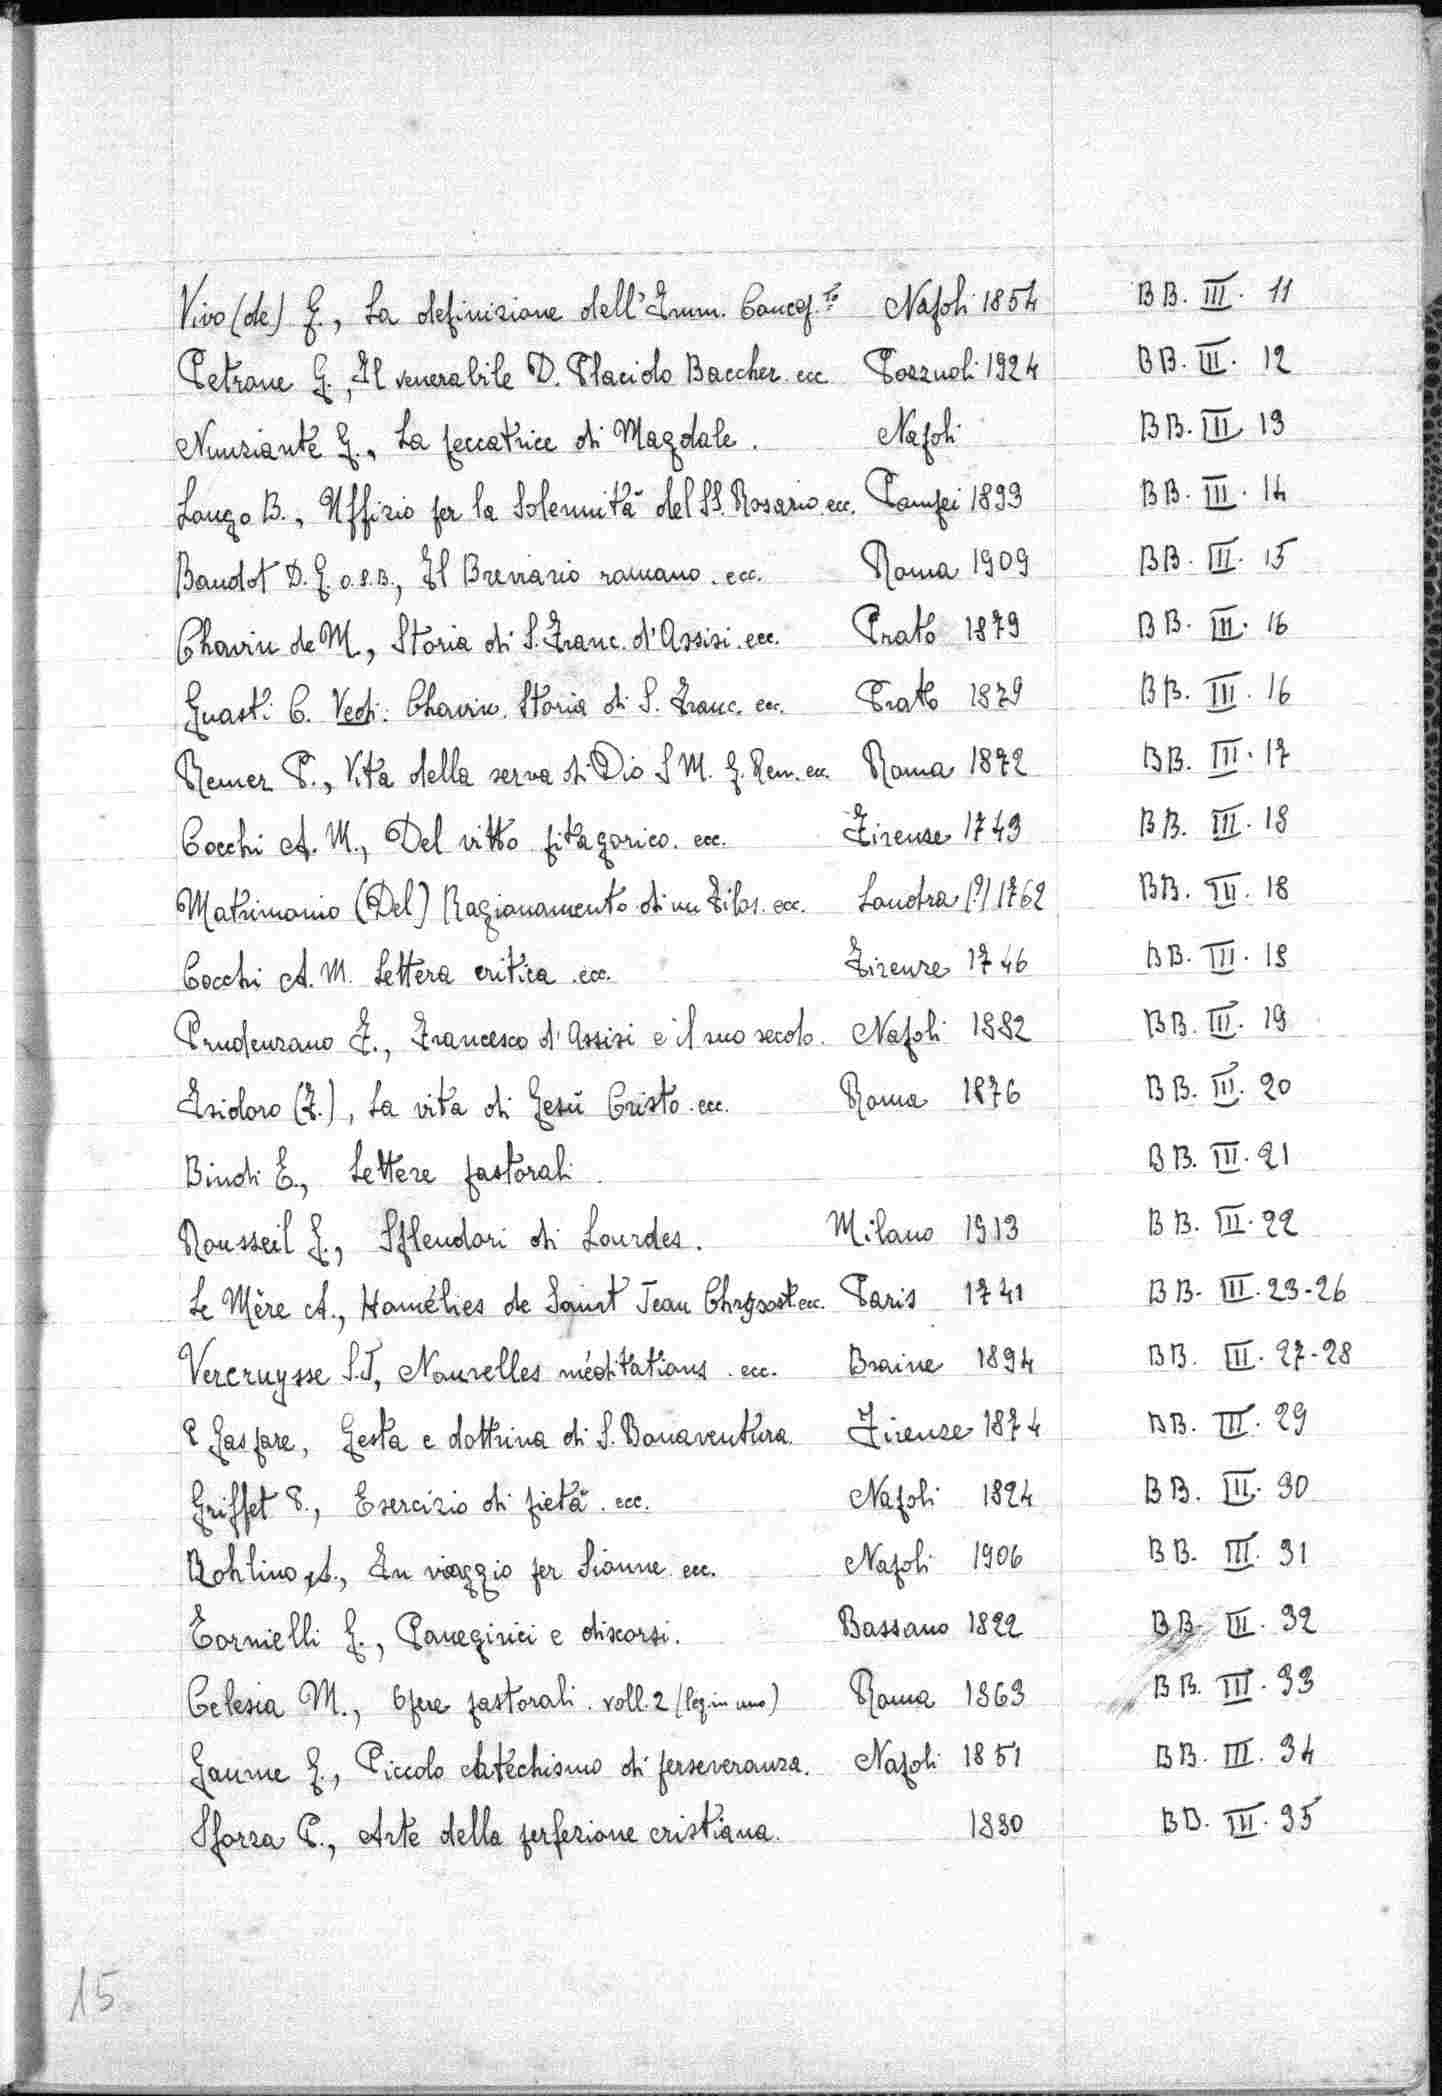 Vivo (de) G., La definizione dell'Imm. Concez.ne Napoli 1854 BB. III. 11
Petrone G., Il venerabile D. Placido Baccher. ecc Pozzuoli 1924 BB. III. 12
Nunziante G., La peccatrice di Magdale. Napoli BB. III. 13
Longo B., Uffizio per la Solennità del SS. Rosario. ecc. Pompei 1899 BB. III. 14
Baudot D. G. O.S.B., Il Breviario romano. ecc. Roma 1909 BB. III. 15
Chavin de M., Storia di S. Franc. d'Assisi. ecc. Prato 1879 BB. III. 16
Guasti C. Vedi: Chavin. Storia di S. Franc. ecc. Prato 1879 BB. III. 16
Remer P., Vita della serva di Dio S M. G. Rem. ecc. Roma 1872 BB. III. 17
Cocchi A. M., Del vitto pitagorico. ecc. Firenze 1743 BB. III. 18
Matrimonio (Del) Ragionamento di un Filos. ecc. Londra (?) 1762 BB. III. 18
Cocchi A. M. Lettera critica. ecc. Firenze 1746 BB. III. 18
Prudenzano F., Francesco d'Assisi e il suo secolo. Napoli 1882 BB. III. 19
Isidoro (F.), La vita di Gesù Cristo. ecc. Roma 1876 BB. III. 20
Bindi E., Lettere pastorali. BB. III. 21
Rousseil G., Splendori di Lourdes. Milano 1913 BB. III. 22
Le Mère A., Homélies de Saint Jean Chrysost ecc. Paris 1741 BB. III. 23-26
Vercruysse S.J, Nouvelles méditations. ecc. Braine 1894 BB. III. 27-28
P Gaspare, Gesta e dottrina di S. Bonaventura. Firenze 1874 BB. III. 29
Griffet P., Esercizio di pietà. ecc. Napoli 1824 BB. III. 30
Rohling A., In viaggio per Sionne ecc. Napoli 1906 BB. III. 31
Tornielli G., Panegirici e discorsi. Bassano 1822 BB. III. 32
Celesia M., Opere pastorali. voll. 2 (leg. in uno) Roma 1863 BB. III. 33
Gaume G., Piccolo catechismo di perseveranza. Napoli 1851 BB. III. 34
Sforza P., Arte della perfezione cristiana. 1830 BB. III. 35
15